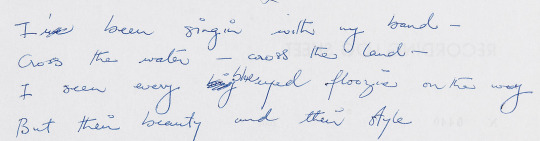 I've been singin with my band —
Cross the water — cross the land —
I seen every blue eyed floozie on the way
But their beauty and their style